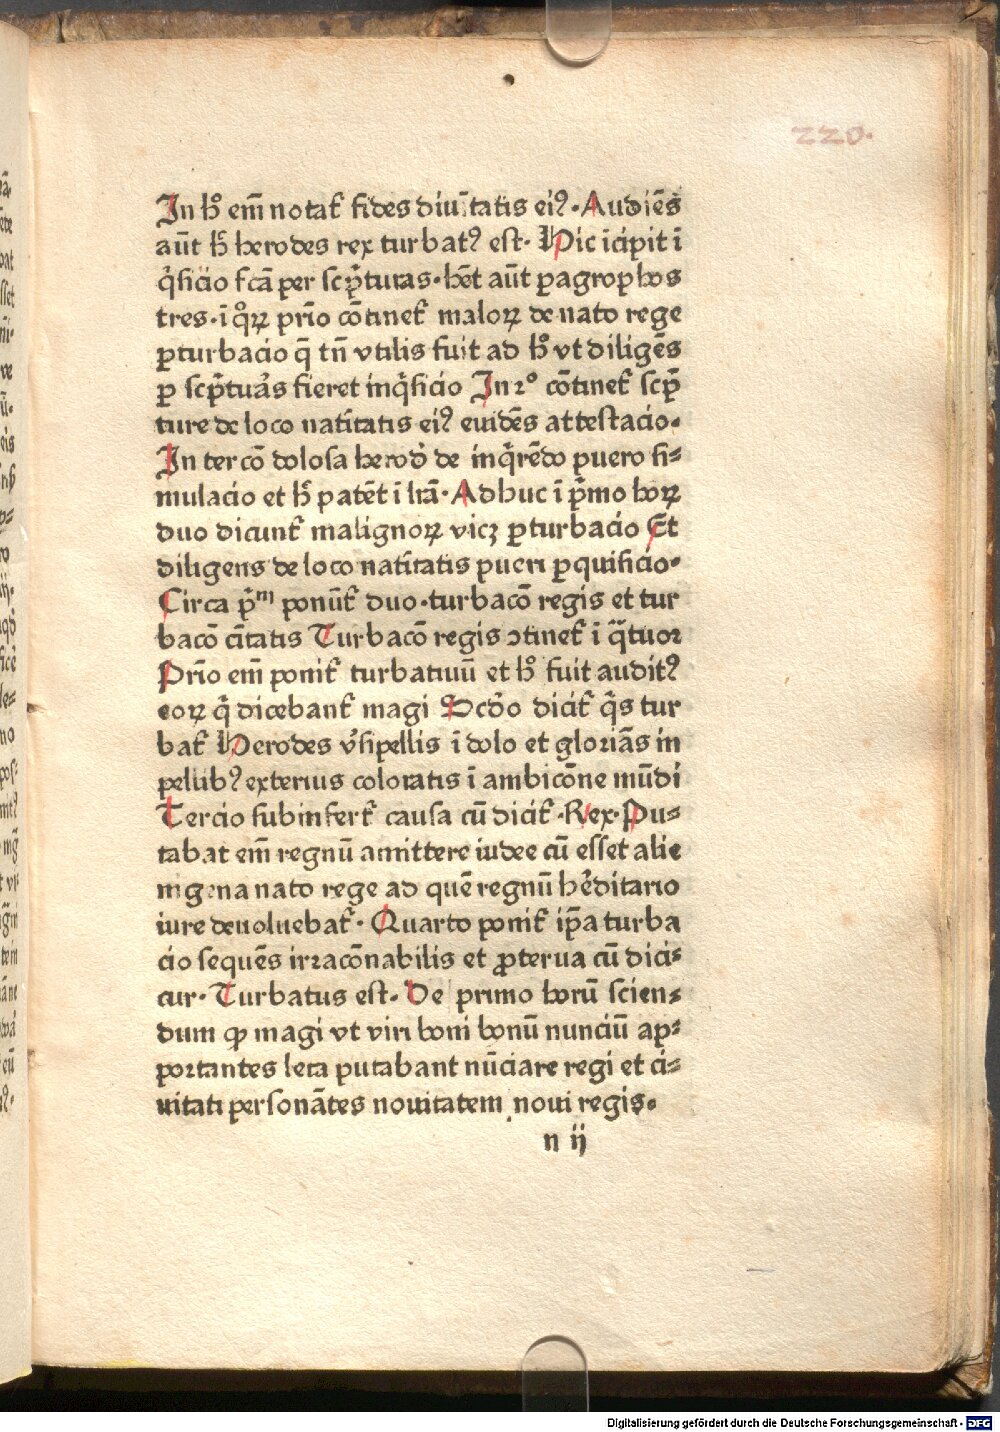 220.
In hͦ em̄ notat᷑ fides diuītatis eiꝰ. Audiēs
aūt hͦ herodes rex turbatꝰ est. Hic īcipit ī
q̇sicio fcā per scp̄turas. hēt aūt pagrophos
tres. ī qͦꝝ prīo cōtinet᷑ maloꝝ de nato rege
ꝑturbacio q̄ tn̄ vtilis fuit ad hͦ vt diligēs
ꝑ scp̄tuās fieret inq̇sicio In 2º cōtinet᷑ scp̄
ture de loco natītatis eiꝰ euidēs attestacio.
In tercō dolosa herod̛ de inq̇rēdo puero si⸗
mulacio et hͦ patēt ī lrā. Adhuc ī p̄mo hoꝝ
duo dicunt᷑ malignoꝝ vicꝫ ꝑturbacio Et
diligens de loco natītatis pueri ꝑquisicio.
Circa p̄ᵐ ponūt᷑ duo. turbacō regis et tur
bacō cītatis Turbacō regis ↄtinet᷑ ī q̄tuor
Prīo em̄ ponit᷑ turbatiuū et hͦ fuit auditꝰ
eoꝝ q̄ dicebant᷑ magi Scd̛o dicit᷑ q̇s tur
bat᷑ Herodes v̛sipellis ī dolo et gloriās in
pellibꝰ exterius coloratis ī ambicōne mūdi
Tercio subinfert᷑ causa cū dicit᷑. Rex. Pu⸗
tabat em̄ regnū amittere iudee cū esset alie
nigena nato rege ad quē regnū hēditario
iure deuoluebat᷑. Quarto ponit᷑ ip̄a turba
cio sequēs irracōnabilis et ꝓterua cū dici⸗
tur. Turbatus est. De primo horū scien⸗
dum ꝙ magi vt viri boni bonū nunciū ap⸗
portantes leta putabant nūciare regi et ci⸗
uitati personātes nouitatem noui regis.
n ij
Digitalisierung gefördert durch die Deutsche Forschungsgemeinschaft - DFG